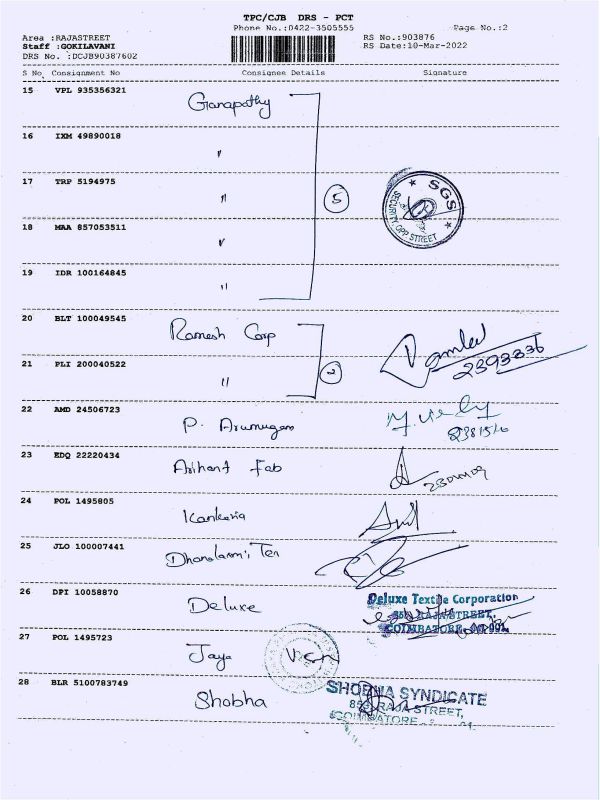 TPC/CJB DRS - PCT
Phone No.:0422-3505555 Page No.:2
Area :RAJASTREET RS No.:903876
Staff :GOKILAVANI RS Date:10-Mar-2022
DRS No. :DCJB90387602
S No. Consignment No Consignee Details Signature
15 VPL 935356321 Ganapathy
16 IXM 49890018 "
17 TRP 5194975 " 5
SGS
SECURITY OPP STREET
18 MAA 857053511 "
19 IDR 100164845 "
20 BLT 100049545 Ramesh Corp
21 PLI 200040522 " 2 2393336
22 AMD 24506723 P. Arumugam
23 EDQ 22220434 Arihant Fab
24 POL 1495805 Kankaria
25 JLO 100007441 Dhanalaxmi Tex
26 DPI 10058870 Deluxe Deluxe Textile Corporation
RAJA STREET,
COIMBATORE
27 POL 1495723 Jaya
28 BLR 5100783749 Shobha SHOBHA SYNDICATE
RAJA STREET,
COIMBATORE